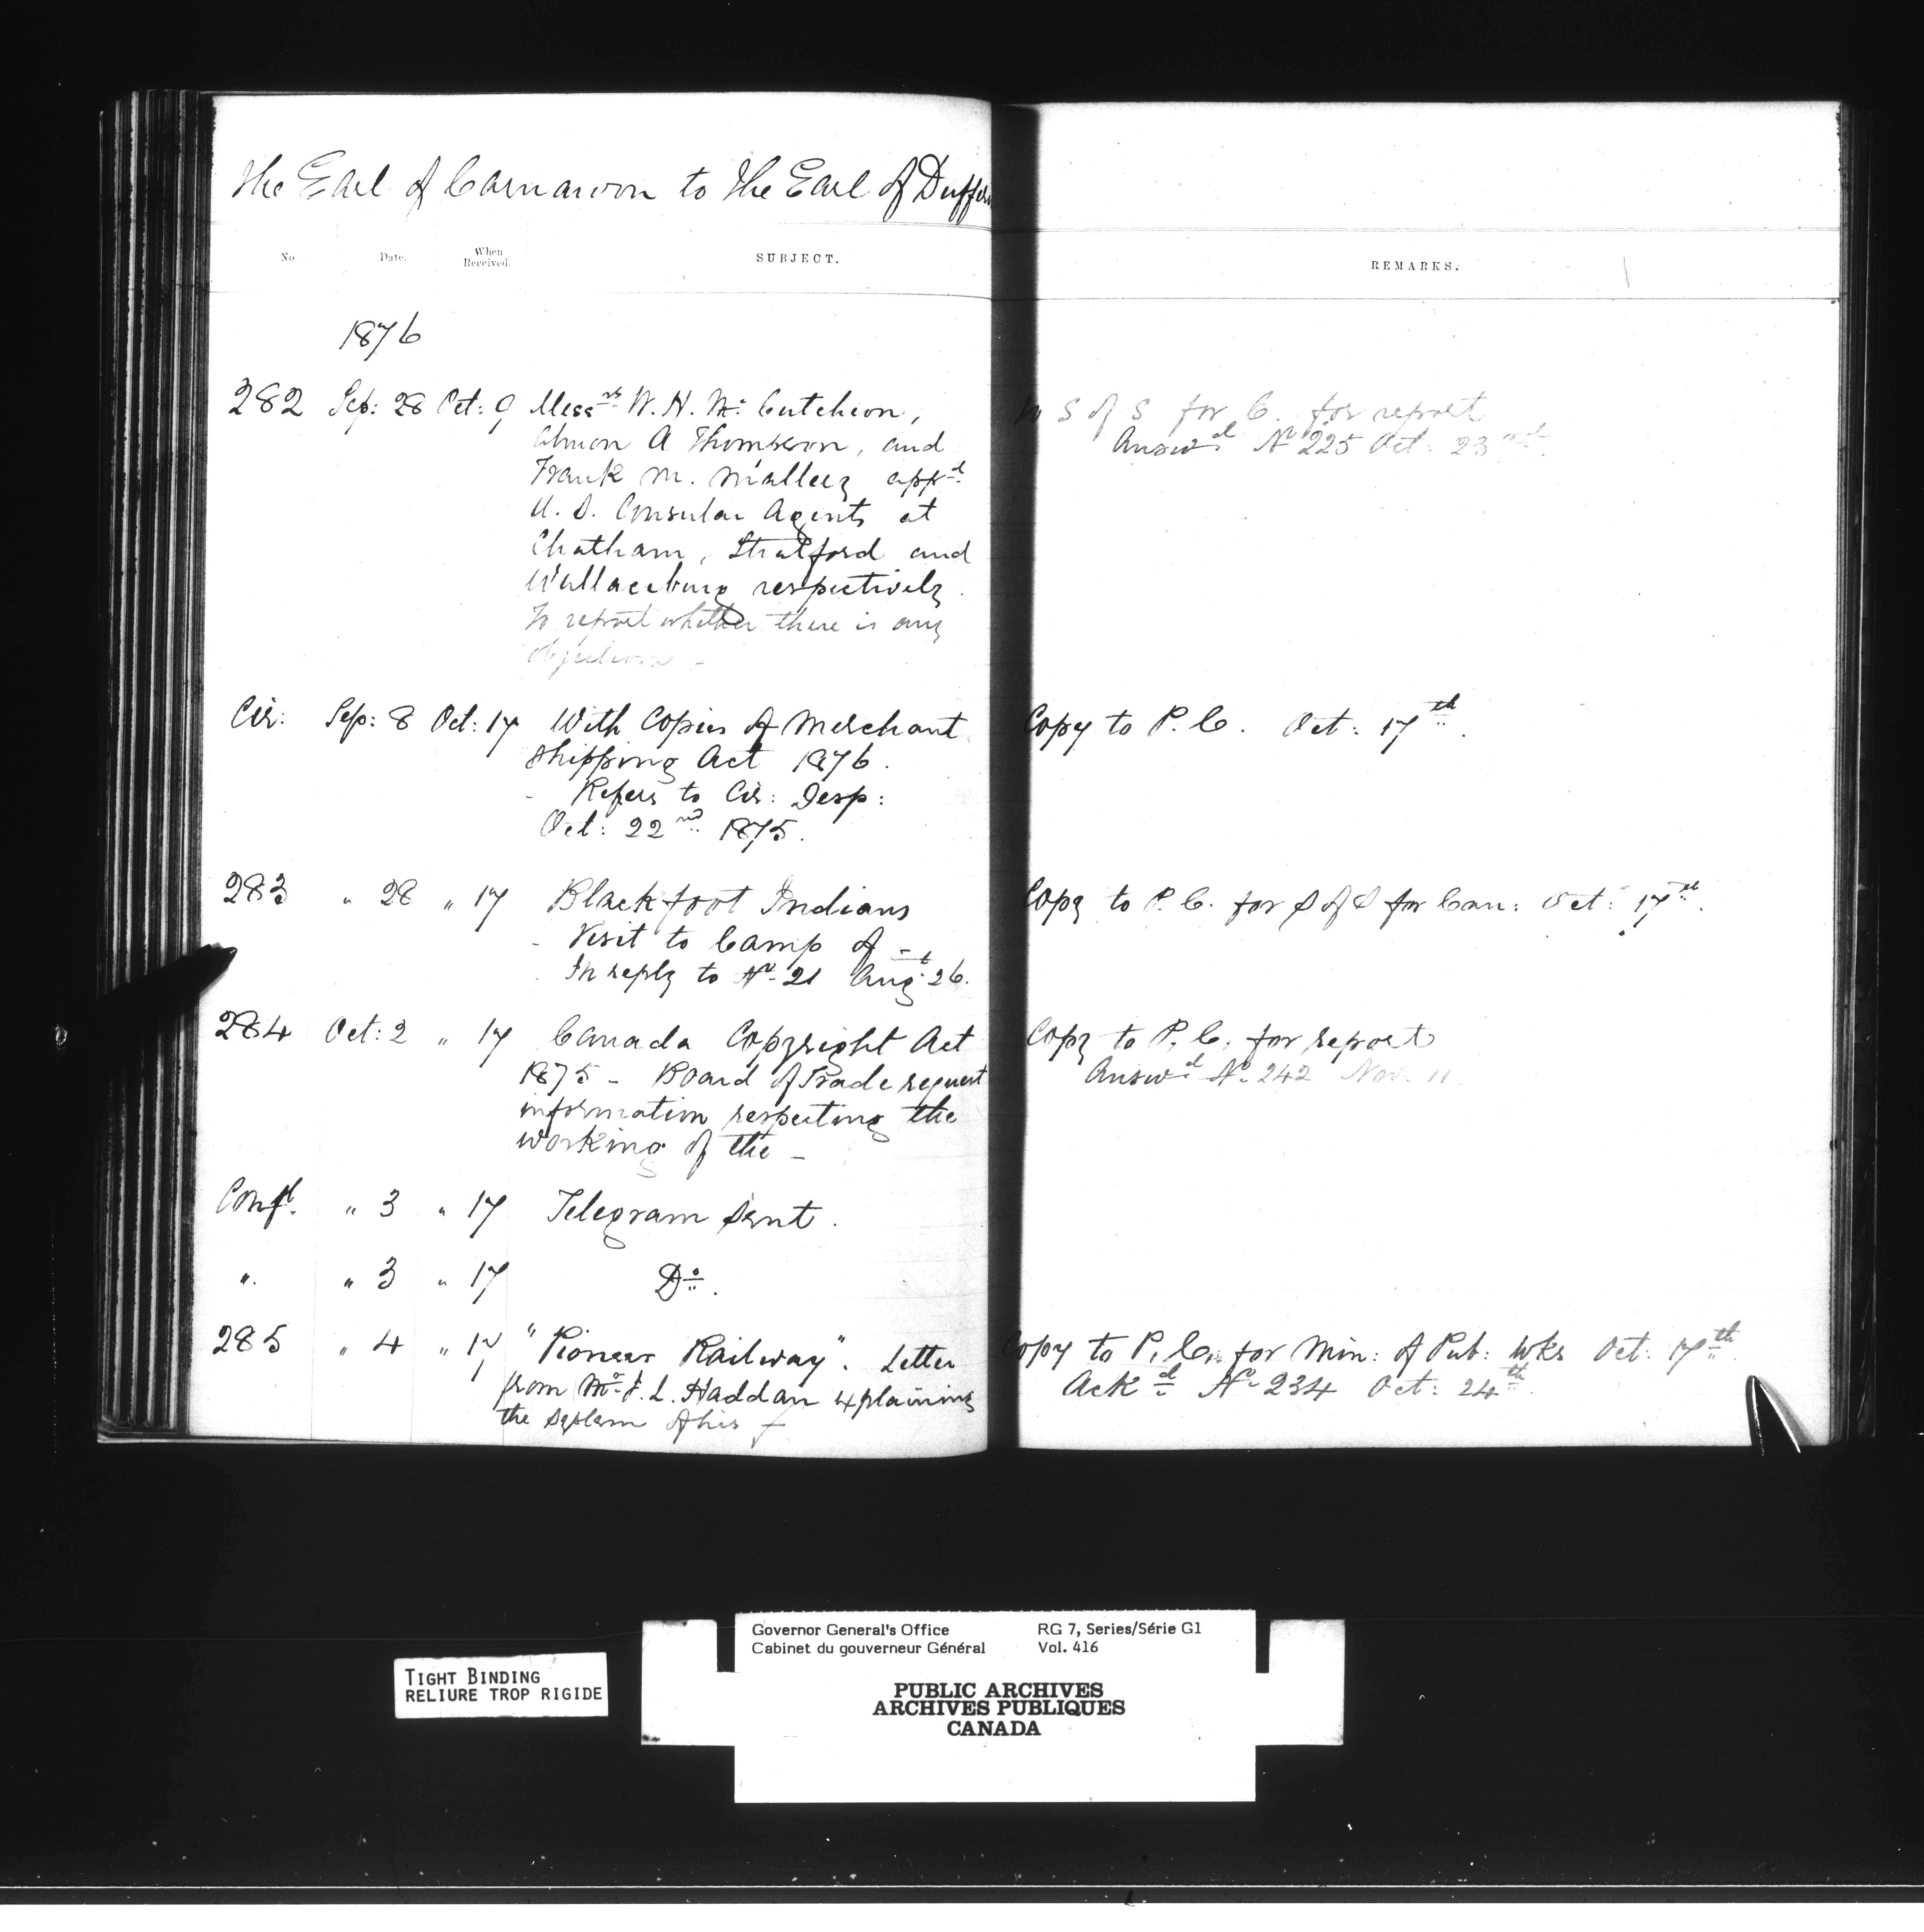 The Earl of Carnarvon to the Earl of Dufferin
No Date. When Received. SUBJECT. REMARKS.
1876
282 Sep: 28 Oct: 9 Messrs W. H. Mc Cutcheon,
Almon A Thomson, and
Frank M. appd
U. S. Consular Agents at
Chatham, Stratford and
Wallaceburg respectively.
To report whether there is any
objection -
S of S for C. for report
Answd No 225 Oct: 23rd
Cir: Sep: 8 Oct: 17 With Copies of Merchant
Shipping Act 1876.
- Refers to Cir: Desp:
Oct: 22nd 1875.
Copy to P. C. Oct: 17th.
283 " 28 " 17 Blackfoot Indians
- Visit to Camp of -
- In reply to No 21 Augt 26.
Copy to P. C. for S of S for Can: Oct: 17th.
284 Oct: 2 " 17 Canada Copyright Act
1875 - Board of Trade request
information respecting the
working of the -
Copy to P. C. for report
Answd No 242 Nov. 11
Confl. " 3 " 17 Telegram sent.
" " 3 " 17 Do.
285 " 4 " 17 "Pioneer Railway". Letter
from Mr J. L. Haddan explaining
the system of his -
Copy to P. C. for Min: of Pub: Wks Oct: 17th.
Ackd No 234 Oct: 24th.
TIGHT BINDING
RELIURE TROP RIGIDE
Governor General's Office RG 7, Series/Série G1
Cabinet du gouverneur Général Vol. 416
PUBLIC ARCHIVES
ARCHIVES PUBLIQUES
CANADA